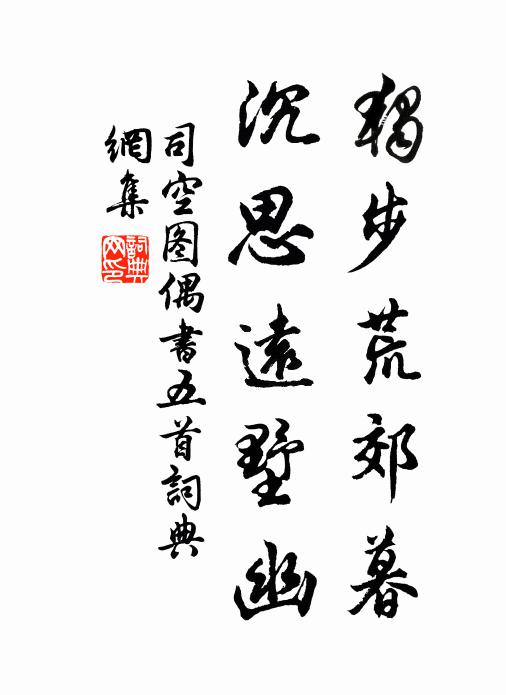 獨步荒郊暮
沉思遠墅幽
司空图偶書五首詞典
網集
詞典
网印